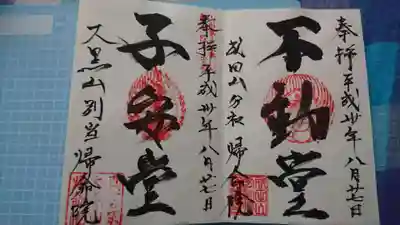 奉拝 平成卅年 八月廿七日
不動堂
成田山分社 帰命院
奉拝 平成卅年 八月廿七日
子安堂
大黒山別当 帰命院